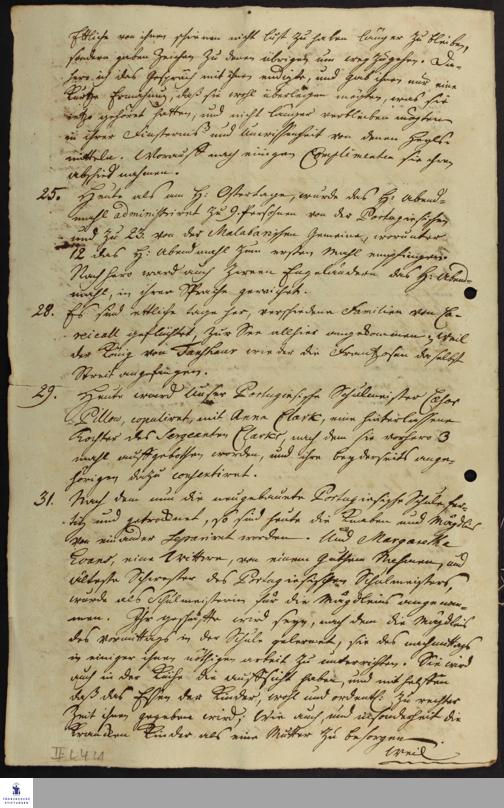 Etliche von ihnen schienen nicht lust zu haben länger zu bleiben,
sondern gaben Zeichen zu denen übrigen um weg zugehen. Da-
hero ich das Gespräch mit ihnen endigte, und gab ihnen nur eine
kurtze Ermahnung, daß sie wohl überlegen möchten, was sie
jetzo gehöret hatten, und nicht länger verbleiben möchten
in ihrer Finsterniß und Unwissenheit von denen Heyls-
mitteln. Worauf nach einigen Complimenten sie ihren
abschied nahmen.
25. Heute als am H: Ostertage, wurde das H: Abend-
mahl administriret zu 9 Personen von der Portugiesischen
und zu 23 von der Malabarischen Gemeine, worunter
12 das H: Abendmahl zum ersten Mahl empfingen.
Nachhero ward auch denen Engeländern das H: Abend-
mahl, in ihrer Sprache gereichet.
28. Es sind etliche tage her, verschiedene Familien von
geflüchtet, zur See allhier angekommen; weil
der König von Tanshaur wieder die Frantzosen daselbst
Streit angefangen.
29. Heute ward unser Portugiesische Schulmeister
copuliret, mit Anna Clark, eine hinterlassene
Tochter des Sergeanten Clarks, nach dem sie vorhero 3
mahl aufgebothen worden, und ihre beyderseits ange-
hörigen dazu consentiret.
31. Nach dem nun die neugebauete Portugiesische Schule fer-
tig und getrocknet, so sind heute die Knaben und Mägdleins
von einander separiret worden. Und Margaretha
eine Wittwe, von einem guthen und
älteste Schwester des Portugiesischen Schulmeisters,
wurde als Schulmeisterin für die Mägdleins angenom-
men. Ihr geschäffte wird seyn, nach dem die Mägdleins
des vormittags in der Schule gelernet, sie des nachmittags
in einiger ihnen nöthigen arbeit zu unterrichten. Sie wird
auch in der Küche die aufsicht haben, und mit
daß das Essen der Kinder, wohl und ordentl: zu rechter
Zeit ihnen gegeben wird; Wie auch, und insonderheit die
krancken Kinder als eine Mutter zu besorgen
weil